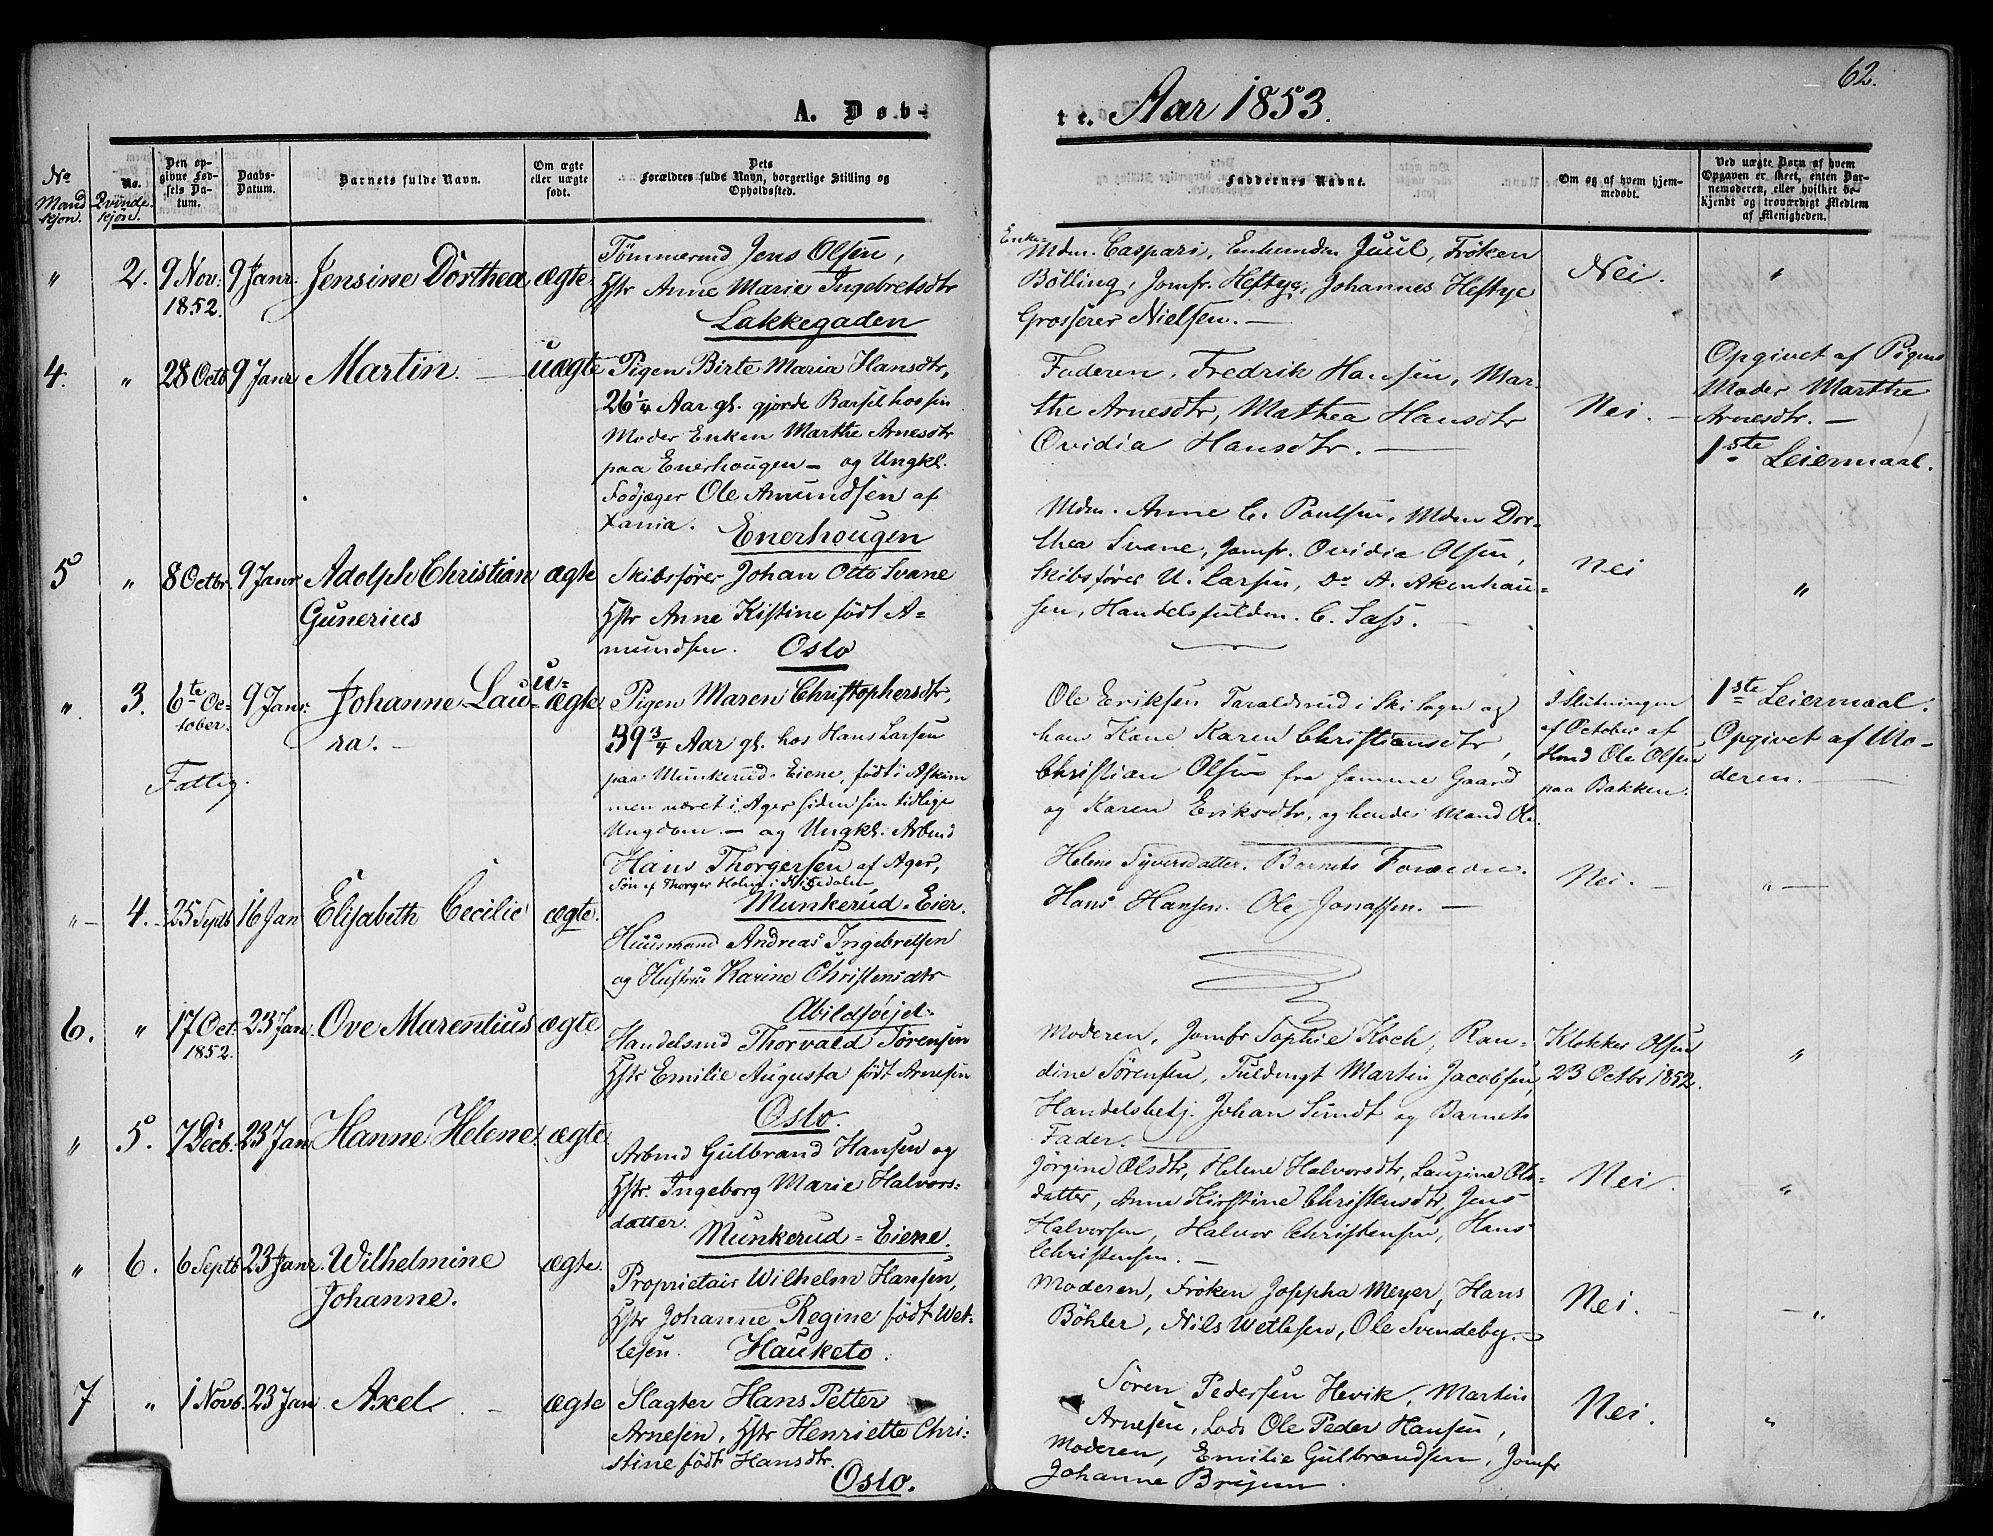 62.
A. Døb-
te. Aar 1853.
No Mandkjøn.
No. Qvindekjøn.
Den opgivne Fødsels Datum.
Daabs-Datum.
Barnets fulde Navn.
Om ægte eller uægte født.
Dets Forældres fulde Navn, borgerlige Stilling og Opholdssted.
Faddernes Navne.
Om og af hvem hjemmedøbt.
Ved uægte Børn af hvem Opgaven er skeet, enten Barnemoderen, eller hvilket bekjendt og troværdigt Medlem af Menigheden.
" 2. 9 Nov: 1852. 9 Janr. Jensine Dorthea ægte.
Tømmermd Jens Olsen,
Hstr Anne Marie Ingebretsdtr
Lakkegaden
Enke-
Mdm. Caspari, Juul, Frøken
Bølling, Jomfr. Heftye, Johannes Heftye
Grosserer Nielsen.
Nei.
"
4. " 28 Octb 9 Janr Martin. uægte
Pigen Birte Maria Hansdtr,
26 1/4 Aar gl. gjorde Barsel hos sin
Moder Enken Marthe Arnesdtr
paa Enerhougen - og Ungkl.
Fodjæger Ole Amundsen af
Xania. Enerhougen
Faderen, Fredrik Hansen, Mar-
the Arnesdtr, Mathea Hansdtr
Ovidia Hansdtr.
Nei.
Opgivet af Pigens
Moder Marthe
Arnesdtr.
1ste Leiermaal.
5 " 8 Octbr. 9 Janr Adolph Christian ægte
Gunerius
Skibsfører Johan Otto Svane
Hstr Anne Kistine født A-
mundsen. Oslo
Mdm. Anne C. Paulsen, Mdm Dor-
thea Svane, Jomfr. Ovidia Olsen,
Skibsfører U. Larsen, Do A. Akenhau-
sen, Handelsfuldm. C. Sass.
Nei
"
" 3. 6te Oc-
tober. 9 Janr. Johanne Lau-
ra. u-
ægte
Fattig.
Pigen Maren Christophersdtr,
39 3/4 Aar gl. hos Hans Larsen
paa Munkerud-Eiene, født i Askim
men været i Ager siden sin tidlige
Ungdom - og Ungkl. Arbmd
Hans Thorgersen af Ager,
Søn af Thorger Holm i
Munkerud-Eier.
Ole Eriksen Taraldsrud i Ski Sogn og
hans Kone Karen Christiansdtr,
Christian Olsen fra samme Gaard
og Karen Eriksdtr, og hendes Mand Ole
I Slutningen
af October af
Hmd Ole Olsen
paa Bakken.
1ste Leiermaal.
Opgivet af Mo-
deren.
" 4. 25 Septb 16 Jan Elisabeth Cecilie ægte.
Huusmand Andreas Ingebretsen
og Hustru Karine Christensdtr
Abildsøejet
Helene Syversdatter. Barnets Forældre.
Hans Hansen. Ole Jonassen.
Nei.
"
6. " 17 Oct. 1852. 23 Jan. Ove Marentius ægte
Handelsmd Thorvald Sørensen
Hstr Emilie Augusta født Arnesen
Oslo.
Moderen, Jomfr Sophie Koch, Ran-
dine Sørensen, Fuldmgt Martin Jacobsen,
Handelsbetj. Johan Sundt og Barnets
Fader.
Klokker Olsen
23 Octbr 1852.
"
" 5. 7 Decb. 23 Jan Hanne Helene. ægte
Arbmd Gulbrand Hansen og
Hstr. Ingeborg Marie Halvors-
datter. Munkerud-Eiene.
Jørgine Olsdtr, Helene Halvorsdtr, Laugine Ols-
datter, Anne Kirstine Christensdtr, Jens
Halvorsen, Halvor Christensen, Hans
Christensen.
Nei.
"
" 6. 6 Septb 23 Janr. Wilhelmine
Johanne. ægte.
Proprietair Wilhelm Hansen,
Hstr Johanne Regine født Wet-
lesen. Hauketo.
Moderen, Frøken Josepha Meyer, Hans
Bøhler, Nils Wetlesen, Ole Svendeby.
Nei.
"
7 " 1 Novb. 23 Jan Axel. ægte
Slagter Hans Petter
Arnesen, Hstr Henriette Chri-
stine født Hansdtr.
Oslo.
Søren Pedersen Hevik, Martin
Arnesen, Lods Ole Peder Hansen,
Moderen, Emilie Gulbrandsen, Jomfr
Johanne
Nei.
"